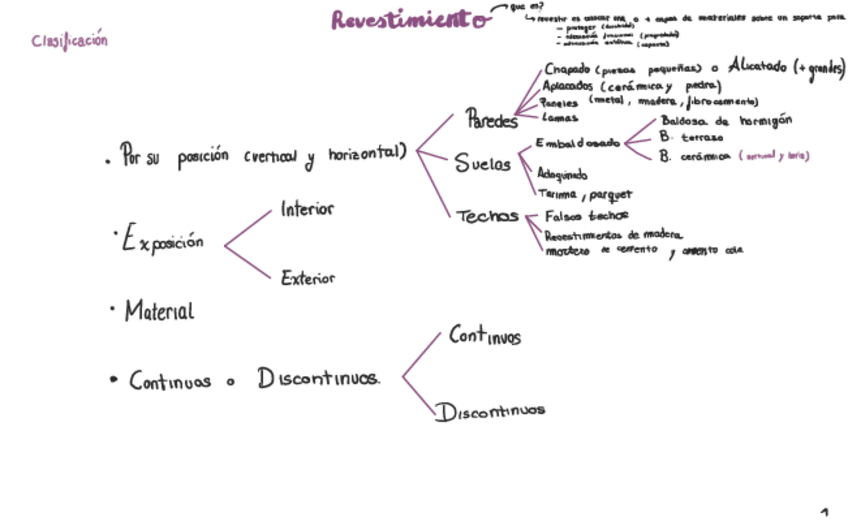 Revestimiento
que es?
revestir es colocar una o + capas de materiales sobre un soporte para
- proteger (durabilidad)
- adecuación funcional (propiedades)
- adecuación estética (aspecto)
Clasificación
Chapado (piezas pequeñas) o Alicatado (+ grandes)
Aplacados (cerámica y piedra)
Paneles (metal, madera, fibrocemento)
Lamas
Paredes
Baldosa de hormigón
Embaldosado
B. terrazo
B. cerámica
• Por su posición (vertical y horizontal)
Suelos
Adoquinado
Tarima, parquet
Techos
Falsos techos
Revestimientos de madera
mortero de cemento y cemento cola
• Exposición
Interior
Exterior
• Material
• Continuos o Discontinuos.
Continuos
Discontinuos
1